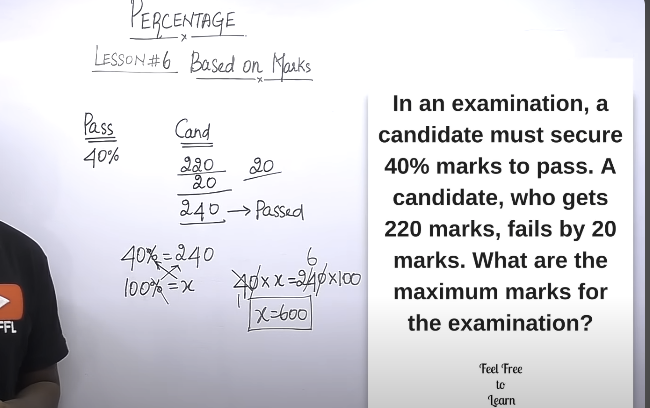 PERCENTAGE
LESSON #6 Based on Marks
Pass
40%
Cand
220 20
20
240 → Passed
40% = 240
100% = x
6
40 x x = 240 x 100
1
x = 600
In an examination, a
candidate must secure
40% marks to pass. A
candidate, who gets
220 marks, fails by 20
marks. What are the
maximum marks for
the examination?
Feel Free
to
Learn
FFL